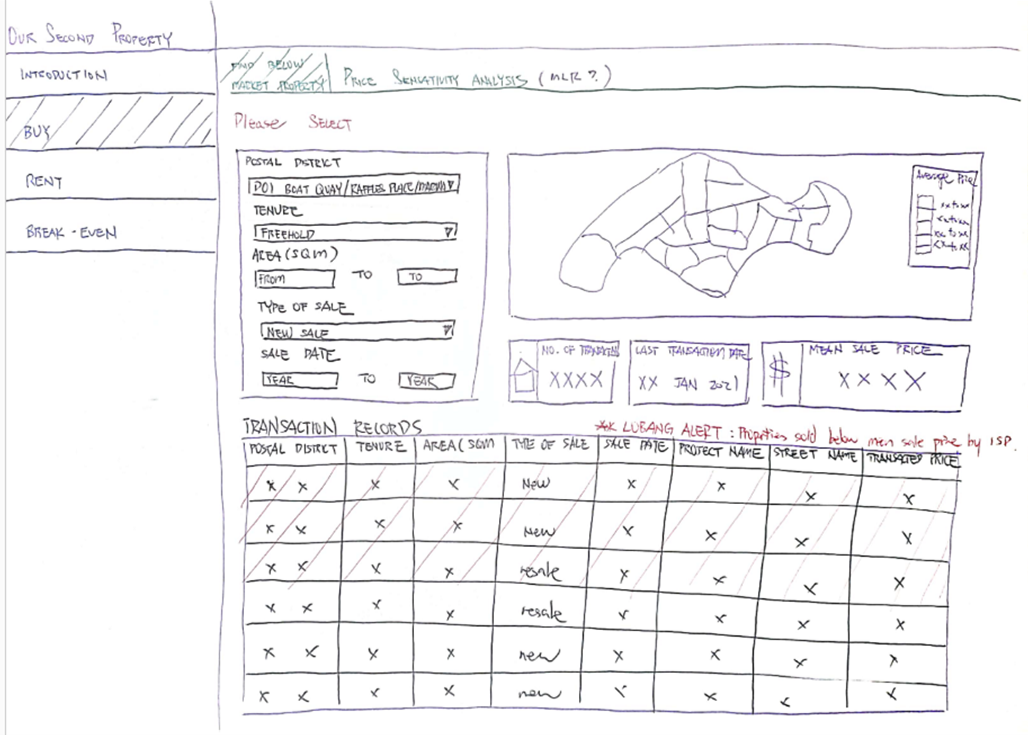 OUR SECOND PROPERTY
INTRODUCTION
BUY
RENT
BREAK-EVEN
FIND BELOW
MARKET PROPERTY
PRICE SENSATIVITY ANALYSIS (MLR?)
Please SELECT
POSTAL DISTRICT
D01 BOAT QUAY/RAFFLES PLACE/MARINA
TENURE
FREEHOLD
AREA (SQM)
FROM TO TO
TYPE OF SALE
NEW SALE
SALE DATE
YEAR TO YEAR
Average Price
xx to xx
xx to xx
xx to xx
xx to xx
NO. OF TRANSACTED
XXXX
LAST TRANSACTION DATE
XX JAN 2021
$ MEAN SALE PRICE
XXXX
TRANSACTION RECORDS
LUBANG ALERT : Properties sold below men sale price by 1SP.
POSTAL DISTRICT TENURE AREA (SQM TYPE OF SALE SALE DATE PROJECT NAME STREET NAME TRANSACTED PRICE
x x x x New x x x x
x x x x new x x x x
x x x x resale x x x x
x x x x resale x x x x
x x x x new x x x x
x x x x new x x x x